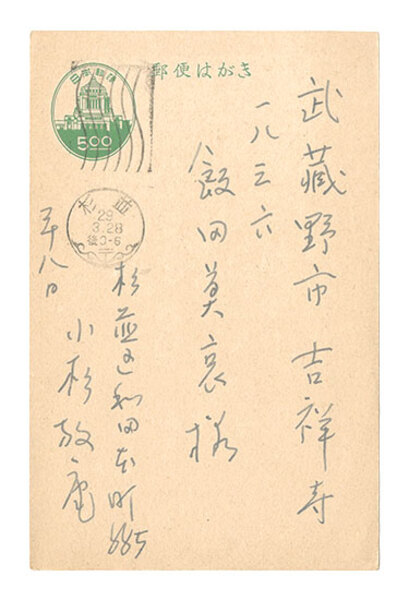 郵便はがき
日本郵便
500
杉並
29
3.28
後0-6
武蔵野市吉祥寺
一八三六
飯田莫哀様
杉並区和田本町885
小杉放庵
八日